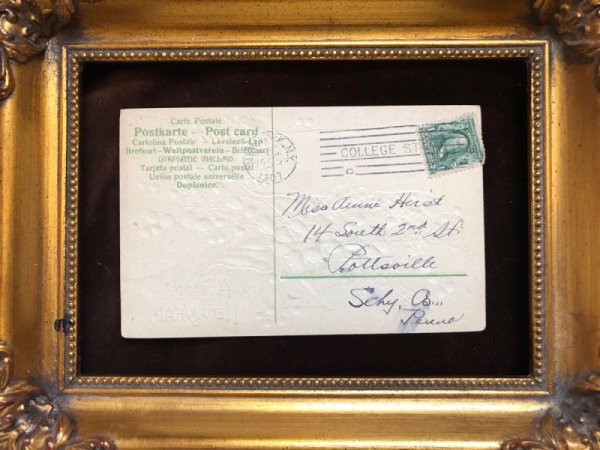 Carte Postale
Postkarte – Post card
Cartolina Postale – Levelező-Lap
Brefkort – Weltpostverein – Briefkaart
ОТКРЫТОЕ ПИСЬМО.
Tarjeta postal – Carte postal
Union postale universelle
Dopisnice.
K, N.Y.
COLLEGE ST
C
Miss Annie Hirst
14 South 2nd St.
Pottsville
Schy, Co..
Penna